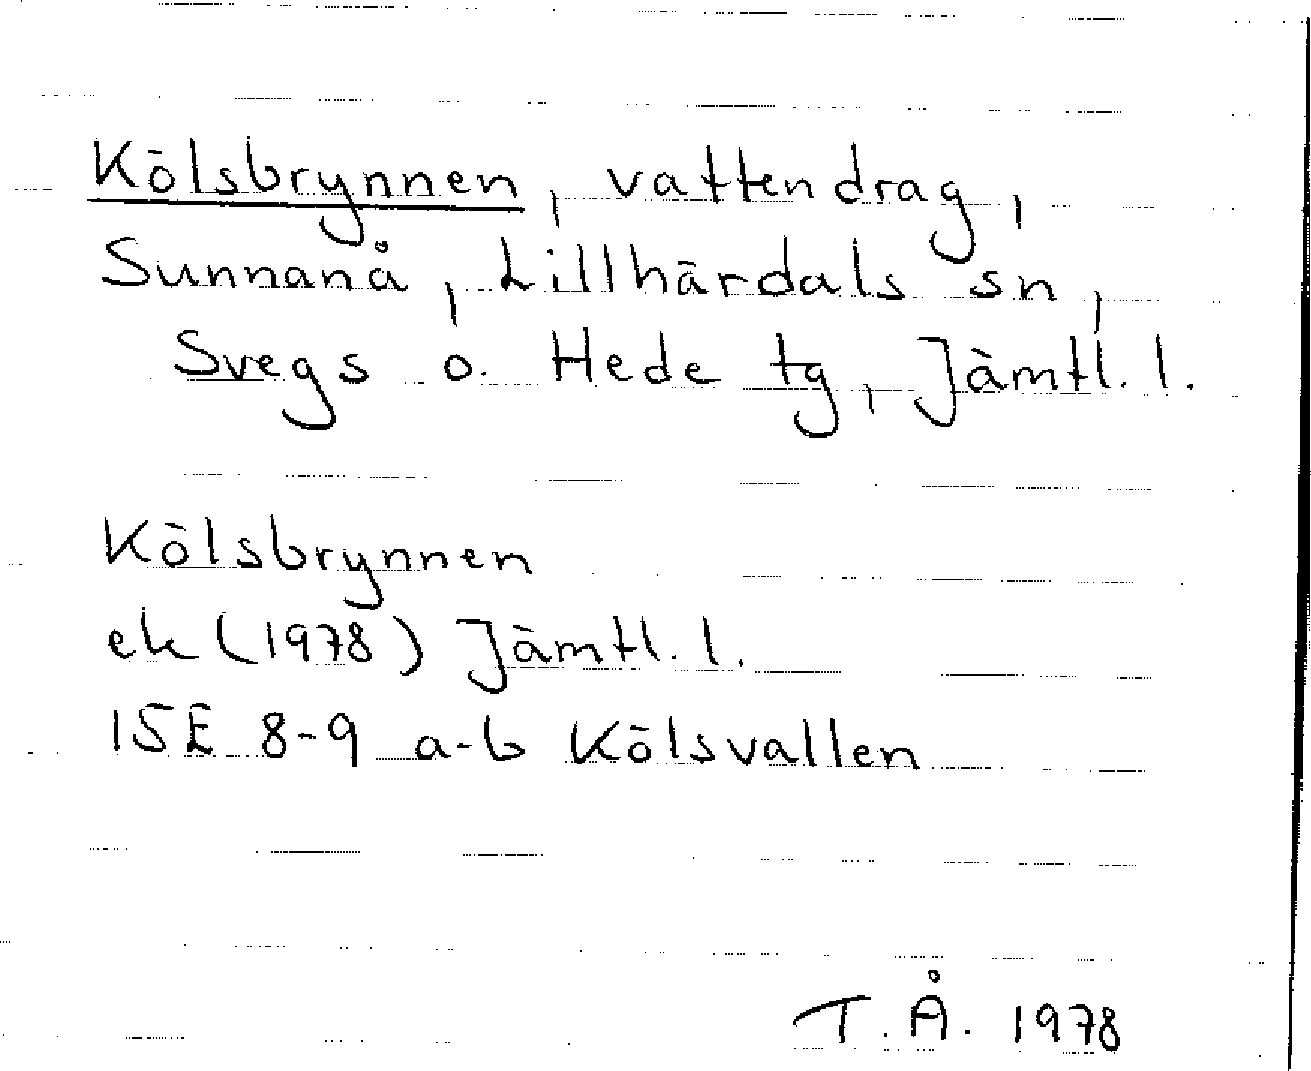 Kölsbrynnen, vattendrag,
Sunnanå, Lillhärdals sn,
Svegs o. Hede tg, Jämtl. l.
Kölsbrynnen
ek (1978) Jämtl. l.
15E 8-9 a-b Kölsvallen
T. Å. 1978